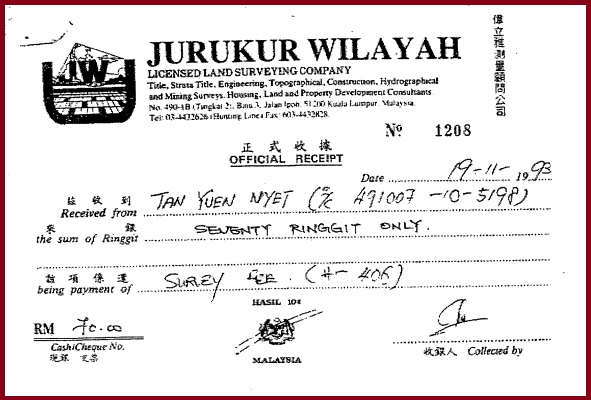 JURUKUR WILAYAH
LICENSED LAND SURVEYING COMPANY
Title, Strata Title, Engineering, Topographical, Construction, Hydrographical
and Mining Surveys, Housing, Land and Property Development Consultants
No. 490-1B (Tingkat 2), Batu 3, Jalan Ipoh, 51200 Kuala Lumpur, Malaysia.
Tel: 03-4432626 (Hunting Line) Fax: 603-4432828.
偉立雅測量顧問公司
JW
No 1208
正式收據
OFFICIAL RECEIPT
Date 19-11-1993
茲收到 TAN YUEN NYET (I/C 491007-10-5198)
Received from
來銀 SEVENTY RINGGIT ONLY.
the sum of Ringgit
該項係還 SURVEY FEE. (H-406)
being payment of
HASIL 10¢
RM 70.00
MALAYSIA
Cash/Cheque No.
現銀 支票
收銀人 Collected by